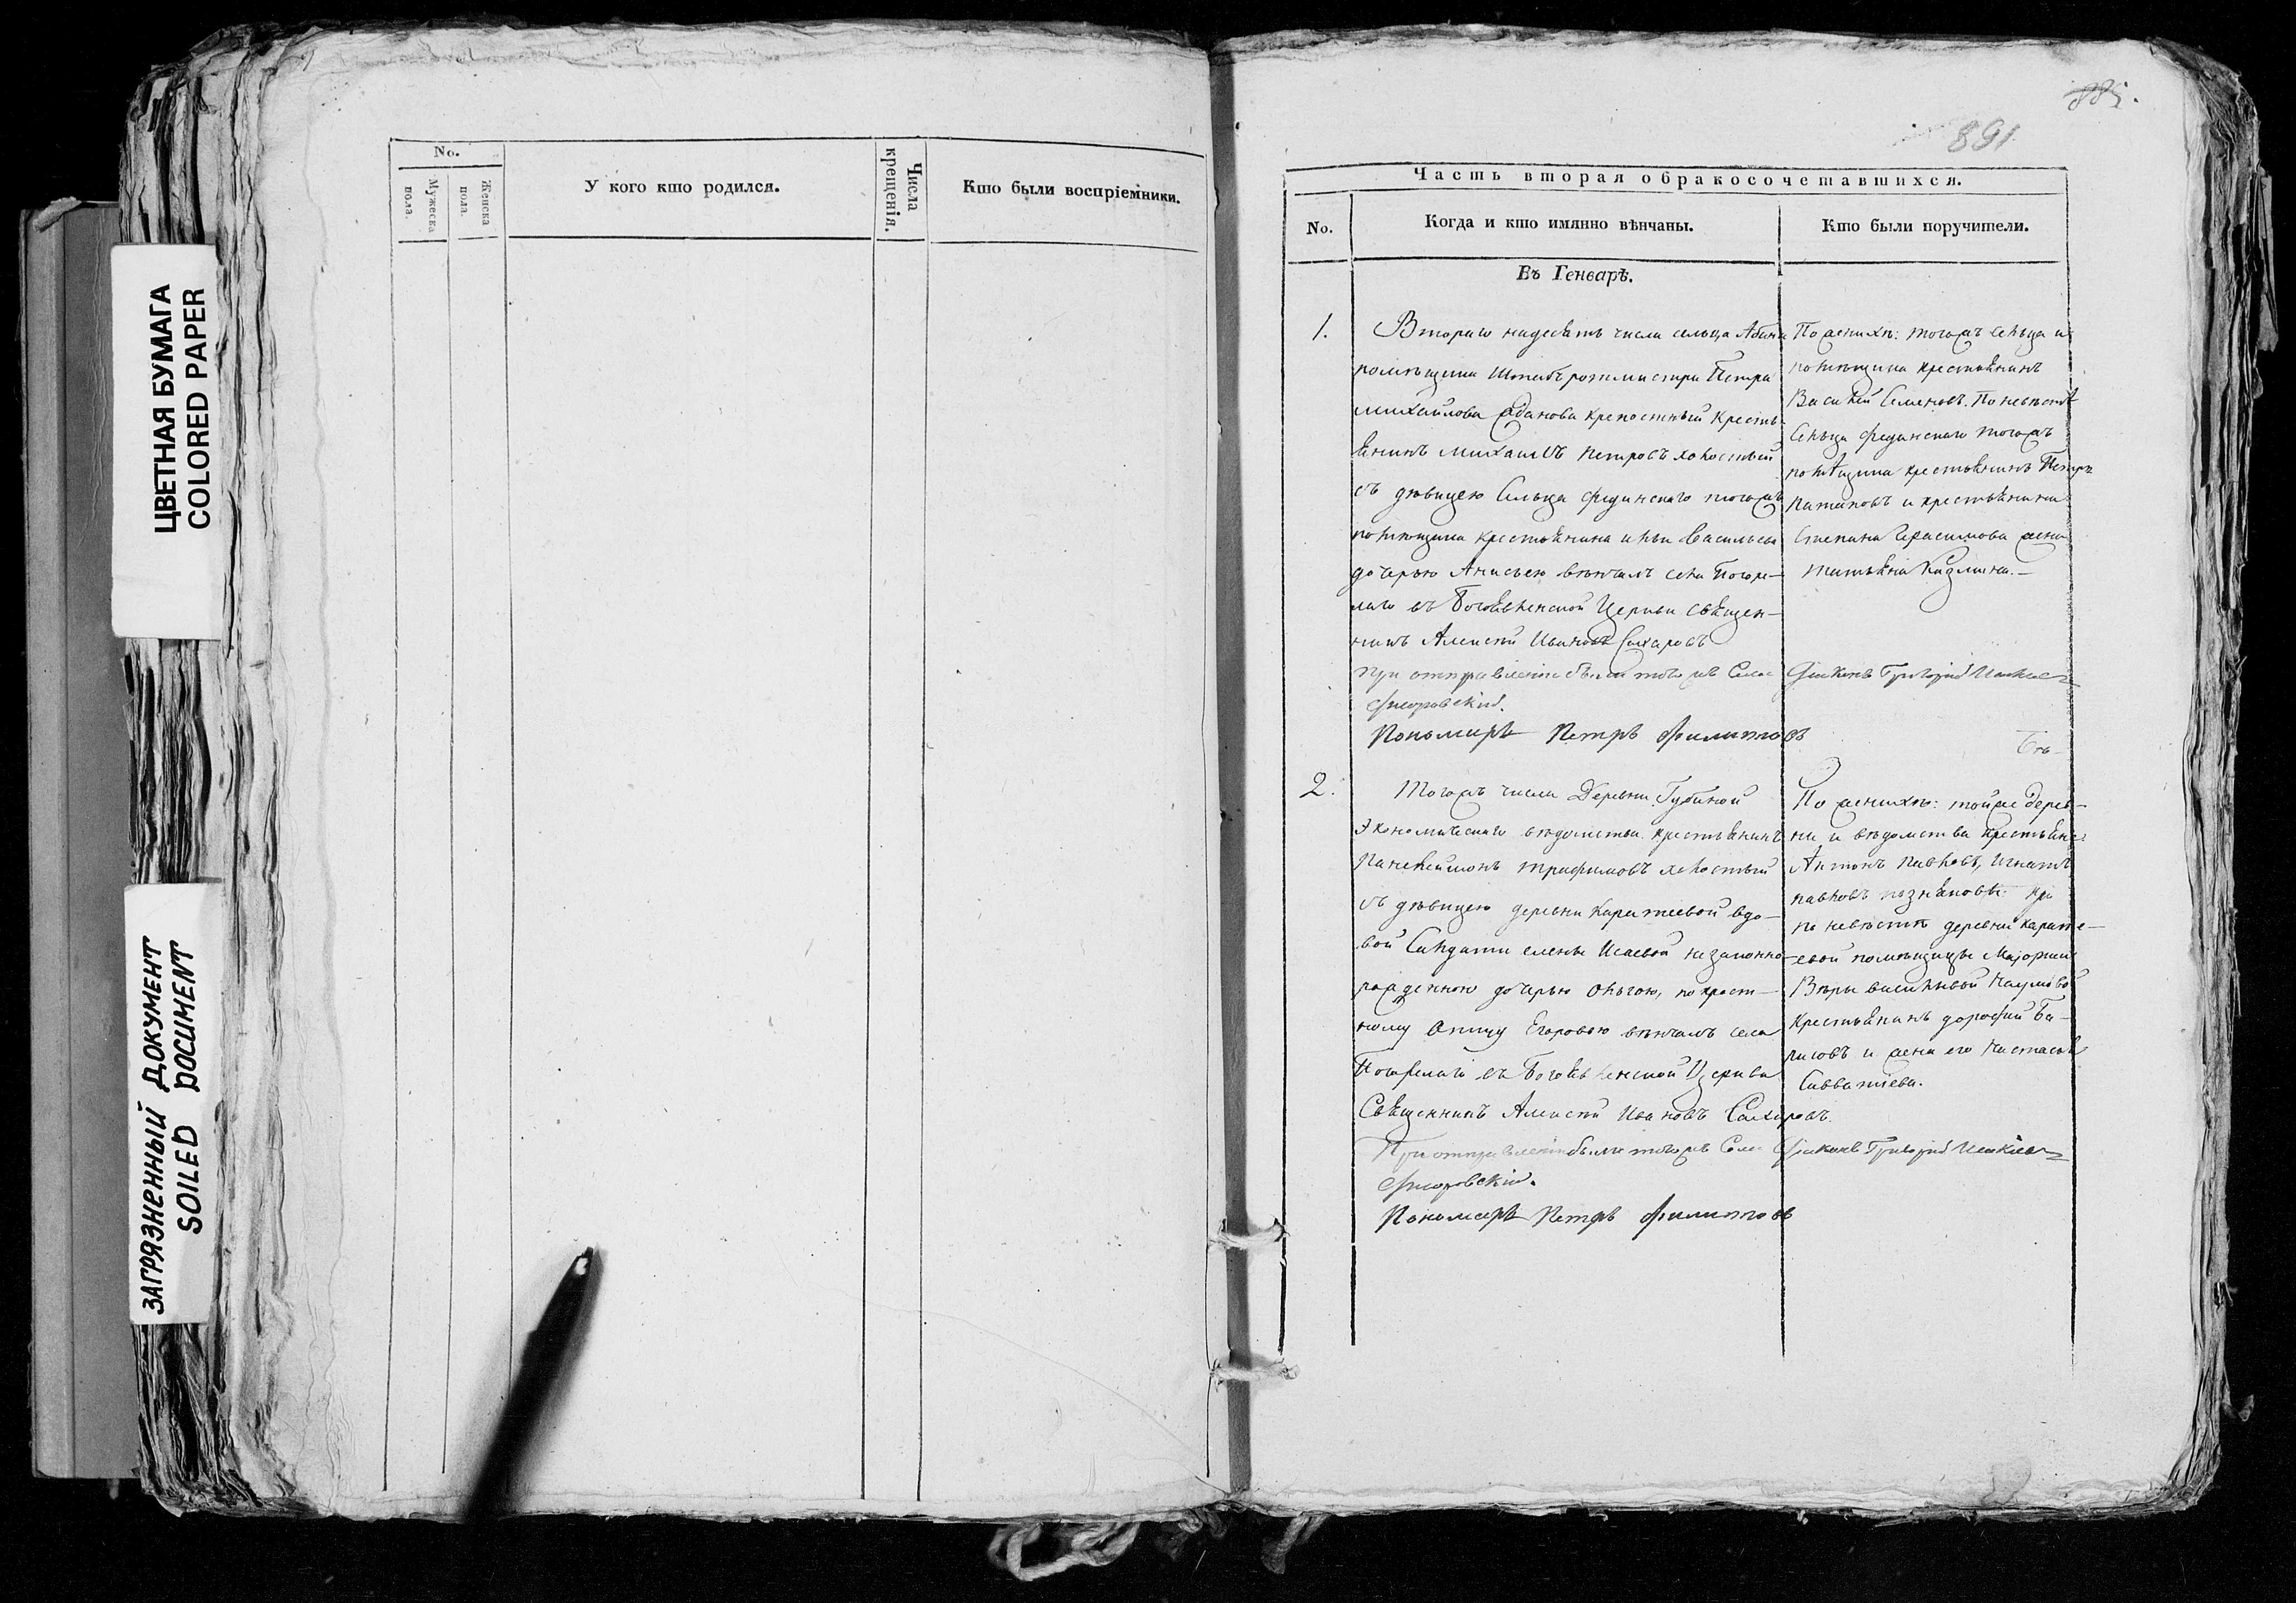 ЦВЕТНАЯ БУМАГА
COLORED PAPER
ЗАГРЯЗНЕННЫЙ ДОКУМЕНТ
SOILED DOCUMENT
No.
Мужеска пола.
Женска пола.
У кого кто родился.
Числа крещенія.
Кто были воспріемники.
885.
891
Часть вторая обракосочетавшихся.
No.
Когда и кто имянно вѣнчаны.
Кто были поручители.
Въ Генварѣ.
1.
Втораго надесять числа сельца
помѣщика Штабъ ротмистра Петра
Михайлова крепостный кресть-
янинъ Михаилъ Петровъ холостый
съ дѣвицею Сельца Фединскаго тогожъ
помѣщика крестьянина Васильева
дочерью Анисьею вѣнчалъ села Погоре-
лаго въ Богоявленской Церкви Священ-
никъ Алексѣй Ивановъ Сахаровъ
При отправленіи были тогожъ Села
Пономарь Петръ Филиповъ
По женихѣ: тогожъ Сельца и
помѣщика крестьянинъ
Василей Семеновъ. По невѣстѣ
Сельца Фединскаго тогожъ
помѣщика крестьянинъ Петръ
и крестьянина
Степана Герасимова жена
Татьяна
Діаконъ Григорій
2.
Тогожъ числа Деревни Губиной
Экономическаго вѣдомства крестьянинъ
Пантелеймонъ Трифимовъ холостый
съ дѣвицею деревни Каратеевой вдо-
вой Салдатки Елены Исаевой незаконно-
рожденною дочерью Ольгою, по крест-
ному Отцу Егоровою вѣнчалъ села
Погорелаго въ Богоявленской Церкви
Священникъ Алексѣй Ивановъ Сахаровъ.
При отправленіи были тогожъ Села
Пономарь Петръ Филиповъ
По женихѣ: тойже дерев-
ни и вѣдомства крестьяне
Антонъ Павловъ, Игнатъ
Павловъ
по невѣстѣ деревни Карате-
евой помѣщицы Маіорши
Вѣры Васильевой Наумовой
Крестьянинъ Дорофей Ба-
рисовъ и жена его Настасья
Савватиева.
Діаконъ Григорій